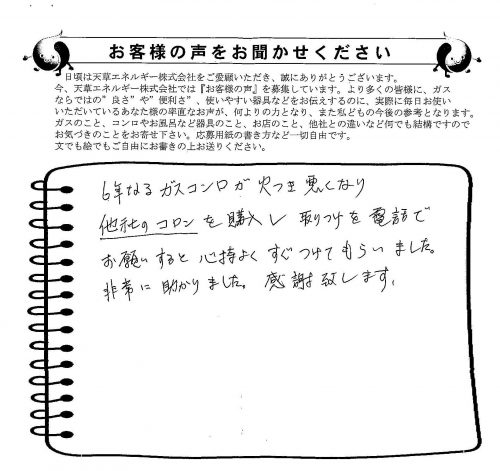 お客様の声をお聞かせください
日頃は天草エネルギー株式会社をご愛顧いただき、誠にありがとうございます。
今、天草エネルギー株式会社では『お客様の声』を募集しています。より多くの皆様に、ガス
ならではの”良さ”や”便利さ”、使いやすい器具などをお伝えするのに、実際に毎日お使い
いただいているあなた様の率直なお声が、何よりの力となり、また私どもの今後の参考となります。
ガスのこと、コンロやお風呂など器具のこと、お店のこと、他社との違いなど何でも結構ですので
お気づきのことをお寄せ下さい。応募用紙の書き方など一切自由です。
文でも絵でもご自由にお書きの上お送りください。
6年なるガスコンロが火つき悪くなり
他社のコロンを購入し取りつけを電話で
お願いすると心持よくすぐつけてもらいました。
非常に助かりました。感謝致します。